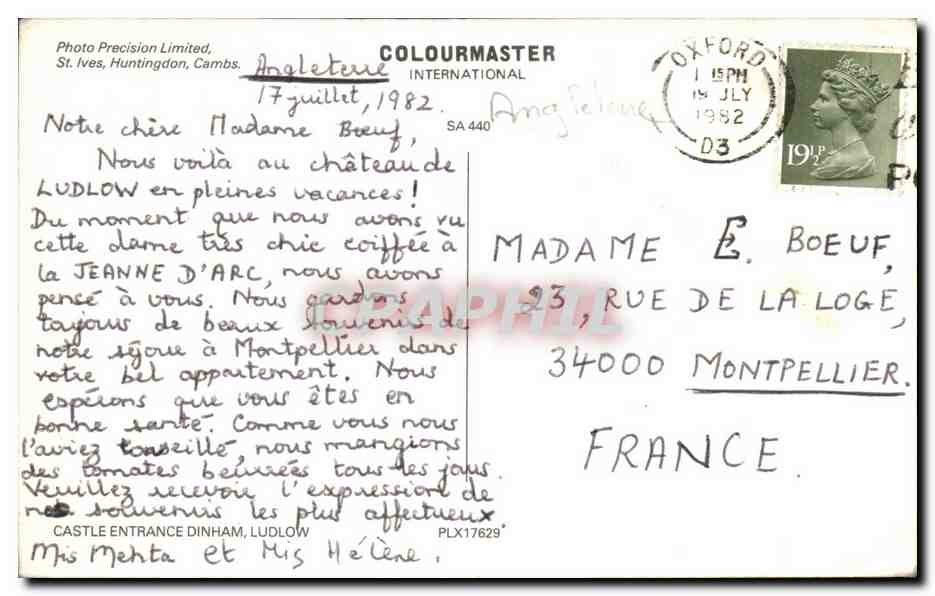 Photo Precision Limited,
St. Ives, Huntingdon, Cambs.
COLOURMASTER
INTERNATIONAL
Angleterre
17 juillet, 1982.
SA 440
Notre chère Madame Bœuf,
Nous voilà au château de
LUDLOW en pleines vacances!
Du moment que nous avons vu
cette dame très chic coiffée à
la JEANNE D'ARC, nous avons
pensé à vous. Nous gardons
toujours de beaux souvenirs de
notre séjour à Montpellier dans
votre bel appartement. Nous
espérons que vous êtes en
bonne santé. Comme vous nous
l'aviez conseillé, nous mangions
des tomates beurrées tous les jours.
Veuillez recevoir l'expression de
nos souvenirs les plus affectueux.
CASTLE ENTRANCE DINHAM, LUDLOW
PLX17629
Mis Mehta et Mis Hélène.
Angleterre
OXFORD
1 15 PM
19 JLY
1982
D3
19½P
MADAME E. BOEUF,
23, RUE DE LA LOGE,
34000 MONTPELLIER.
FRANCE.
CPAPHIL